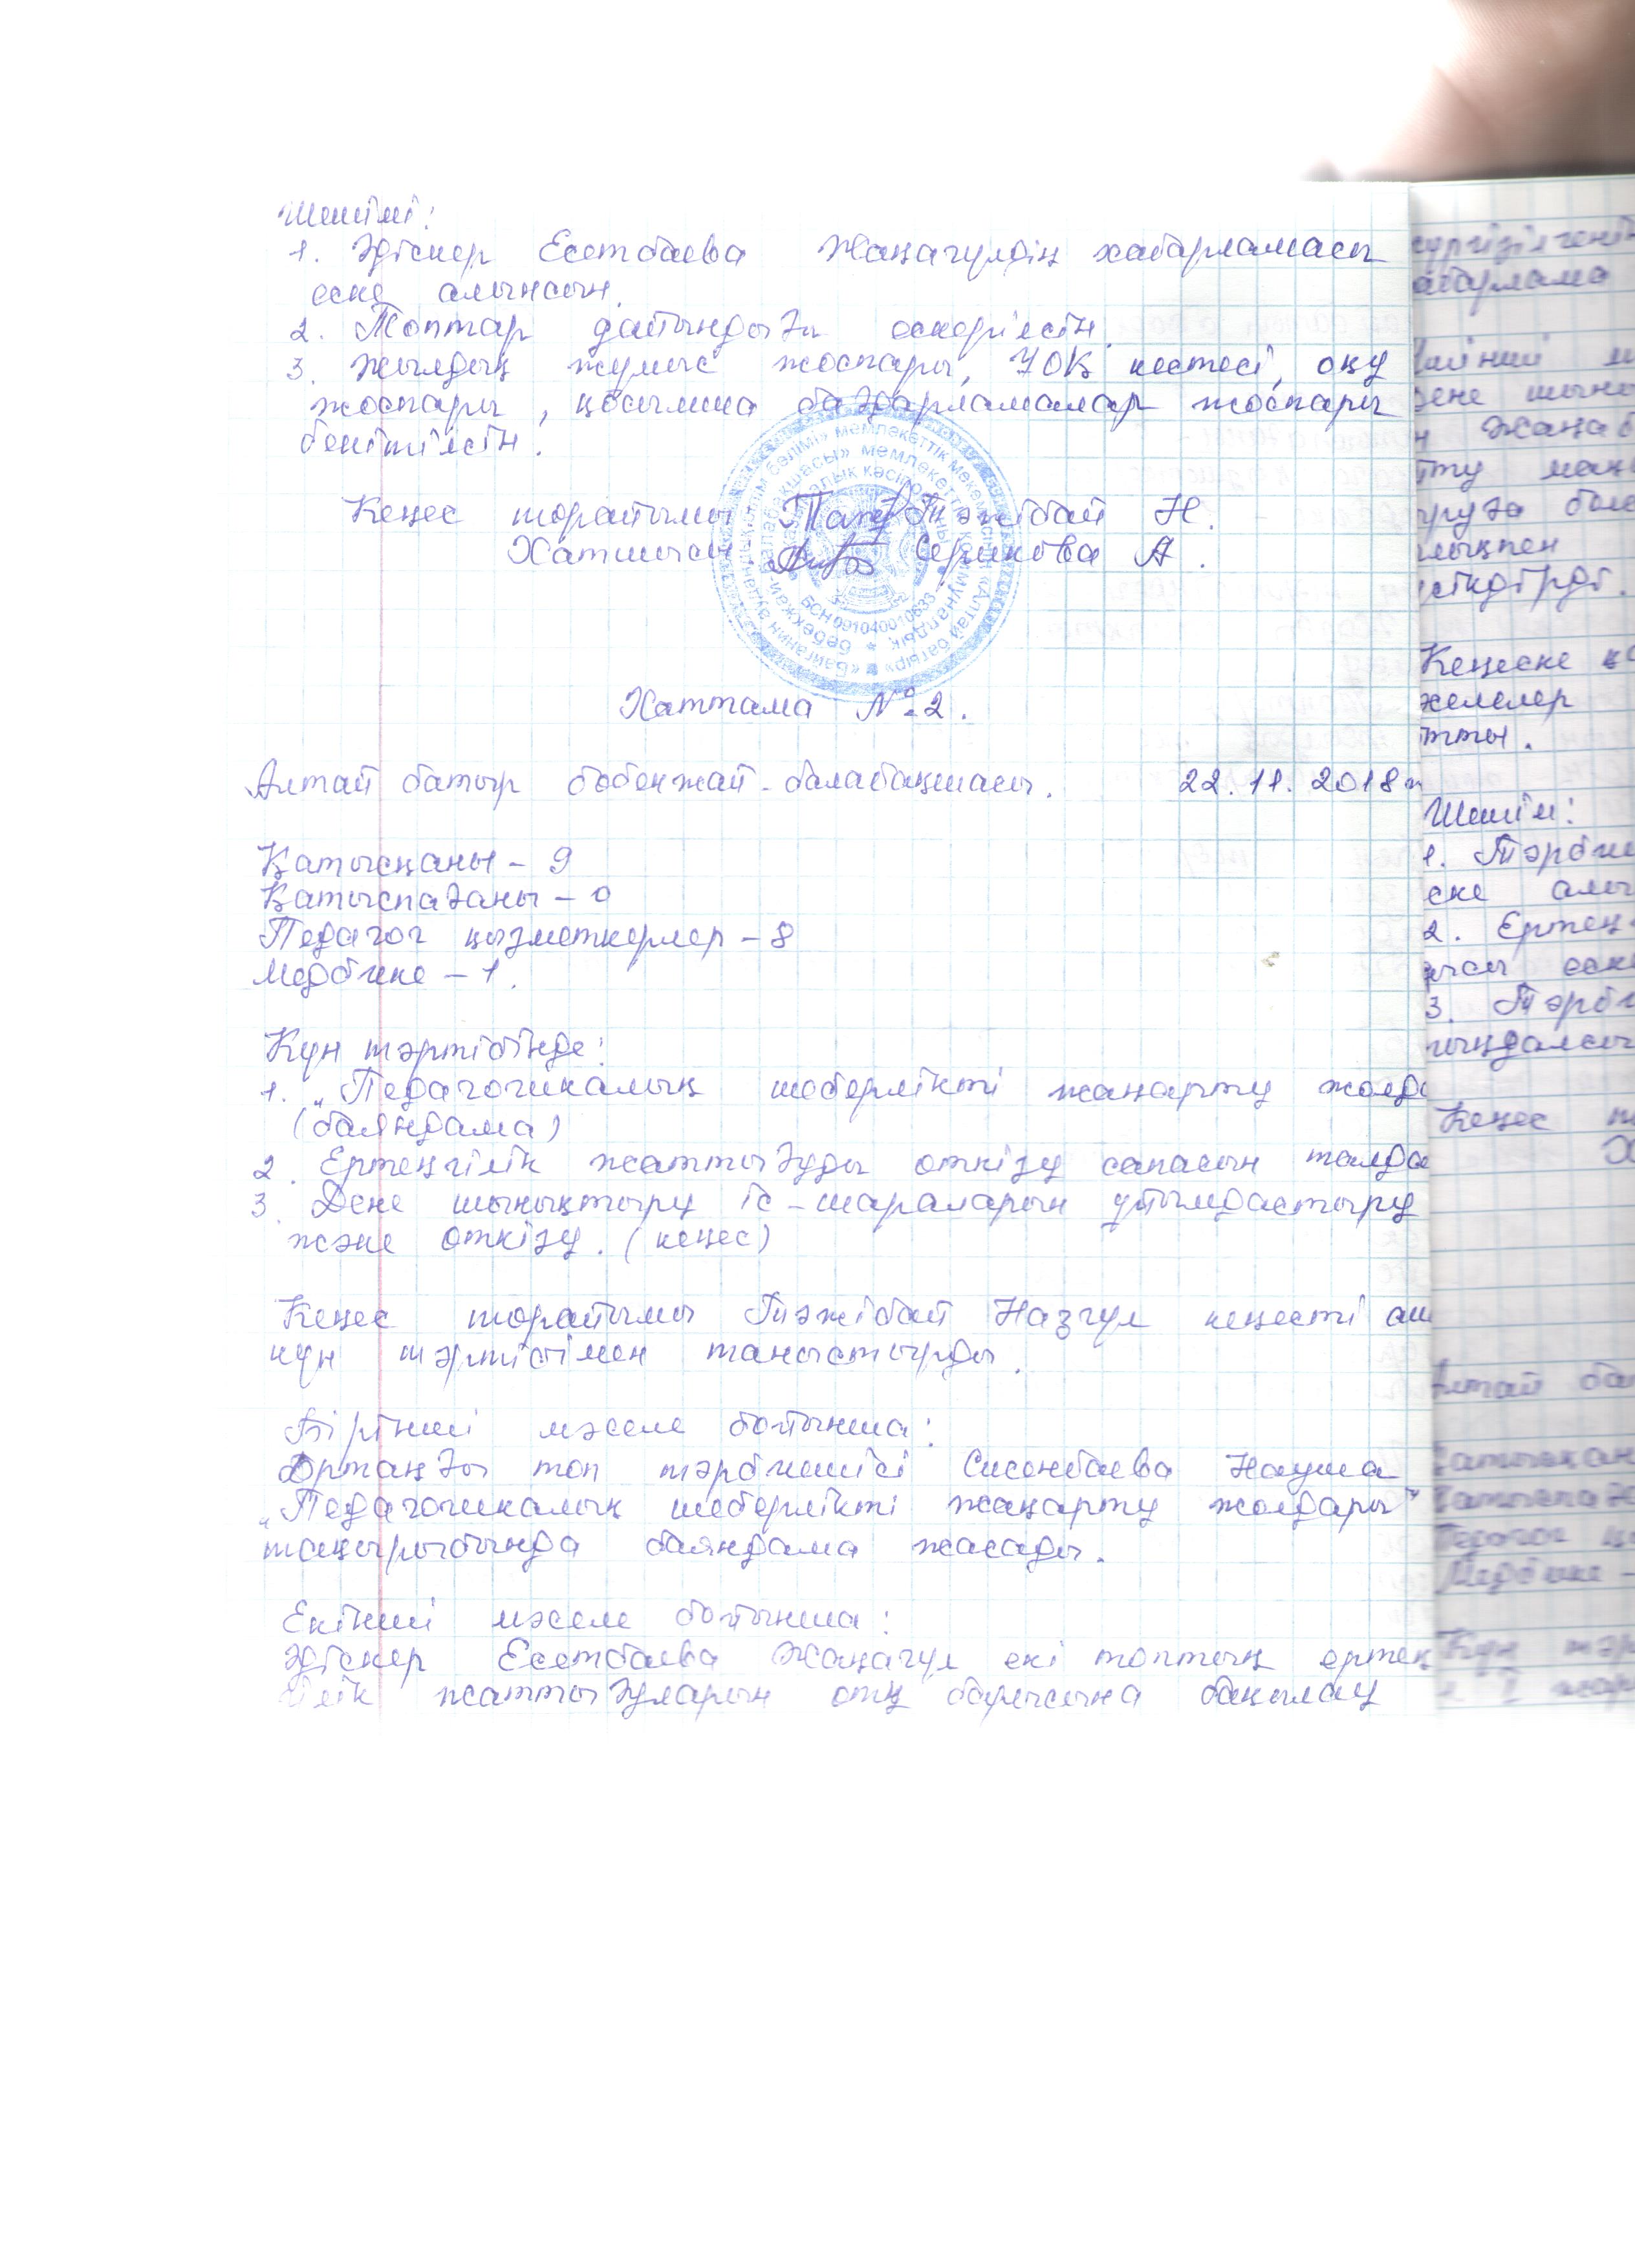 Шешімі:
1. Әдіскер Есетбаева Жаңагүлдің хабарламасы
еске алынсын.
2. Топтар дайындығы ескерілсін.
3. Жылдық жұмыс жоспары, ҰОҚ кестесі, оқу
жоспары, қосымша бағдарламалар жоспары
бекітілсін.
Кеңес төрайымы Тәжібай Н.
Хатшысы Серикова А.
БСН 091040010633
Хаттама №2.
Алтай батыр бөбекжай-балабақшасы. 22.11.2018ж
Қатысқаны – 9
Қатыспағаны – 0
Педагог қызметкерлер – 8
Медбике – 1.
Күн тәртібінде:
1. „Педагогикалық шеберлікті жаңарту жолда
(баяндама)
2. Ертеңгілік жаттығуды өткізу сапасын талда
3. Дене шынықтыру іс-шараларын ұйымдастыру
және өткізу. (кеңес)
Кеңес төрайымы Тәжібай Назгүл кеңесті аш
күн тәртібімен таныстырды.
Бірінші мәселе бойынша:
Ортаңғы топ тәрбиешісі Сисенбаева Науша
„Педагогикалық шеберлікті жаңарту жолдары"
тақырыбында баяндама жасады.
Екінші мәселе бойынша:
Әдіскер Есетбаева Жаңагүл екі топтың ертең
гілік жаттығуларын өтк барысына бақылау
жүргізілгенін
абарлама
дене шыны
Жаңаб
руға бол
лықпен
сіндірді.
Кеңеске қа
желелер
тты.
Шешім:
1. Тәрбие
ске алы
2. Ертең
3. Тәрби
ындалсы
Кеңес т
Х
лтай ба
Қатысқан
Қатыспаға
Педагог қы
Медбике –
Күн тәр